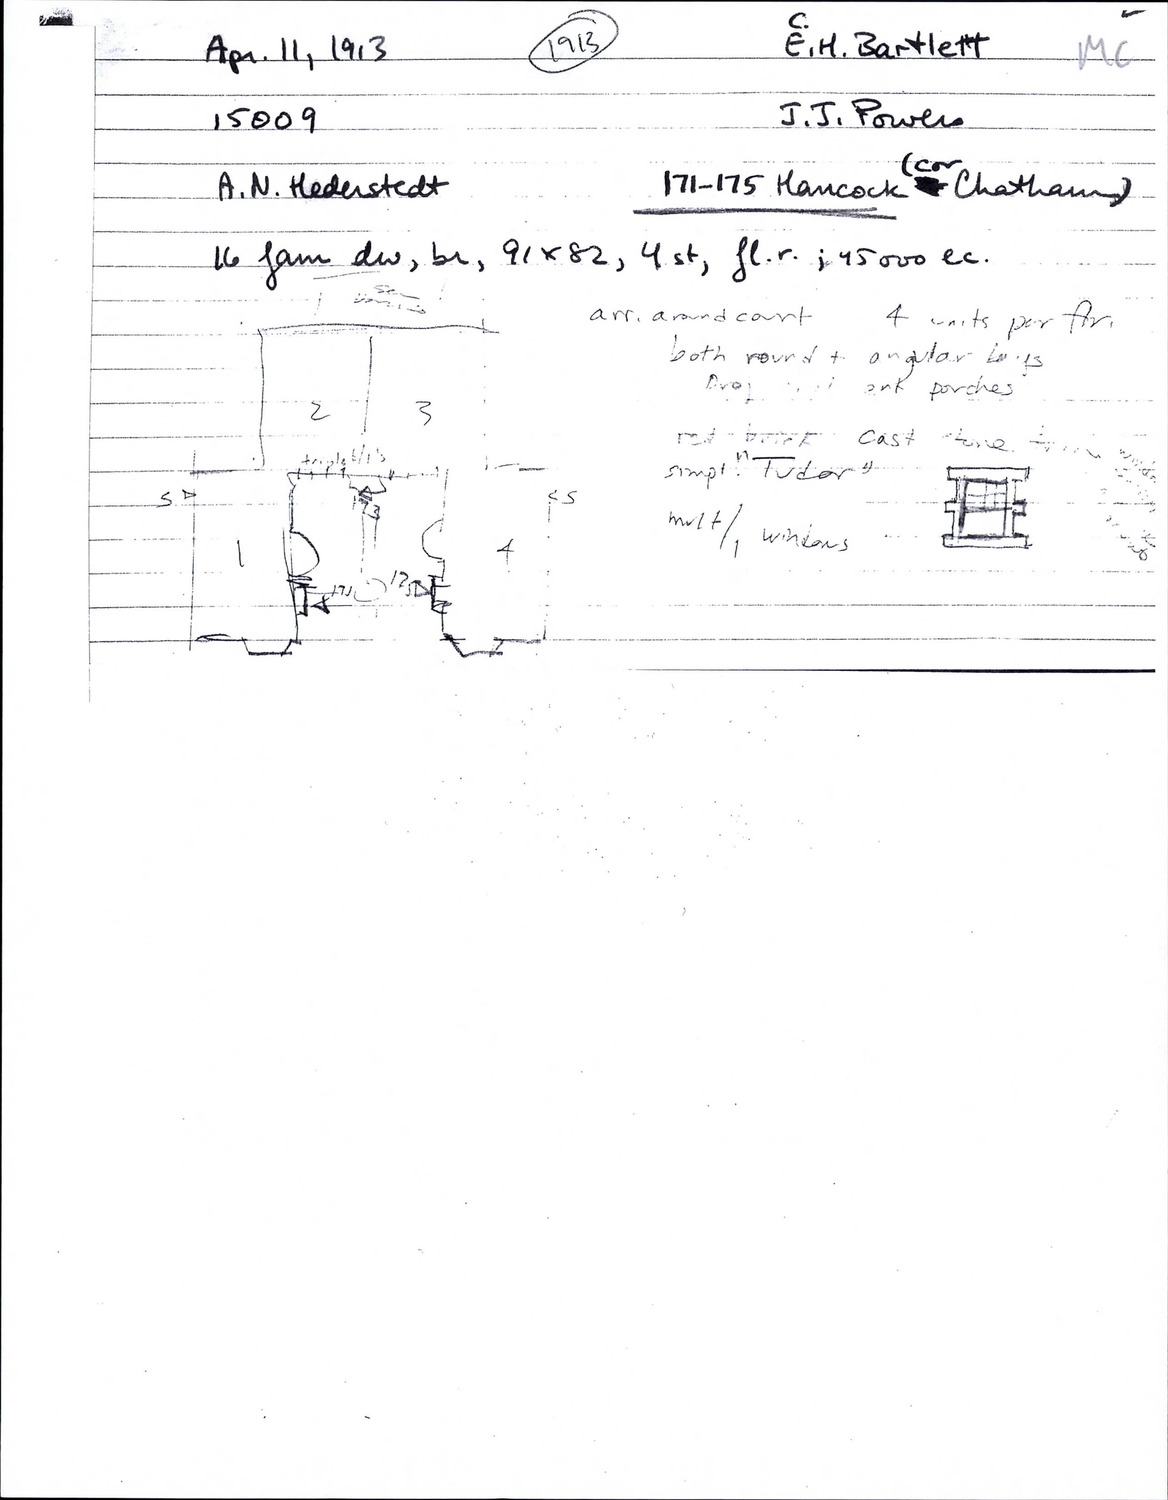 Apr. 11, 1913 (1913) C. E.H. Bartlett MC
15009 J.J. Powers
A.N. Hederstedt 171-175 Hancock (cor Chatham)
16 fam dw, br, 91x82, 4 st, fl.r. ; 45000 ec.
arr. around court 4 units per flr.
both round + angular bays
porches
red brick cast stone trim
2 3
triplet 6/1's
simpl. "Tudor"
S S
173
mult/1 windows
1 4
171 175